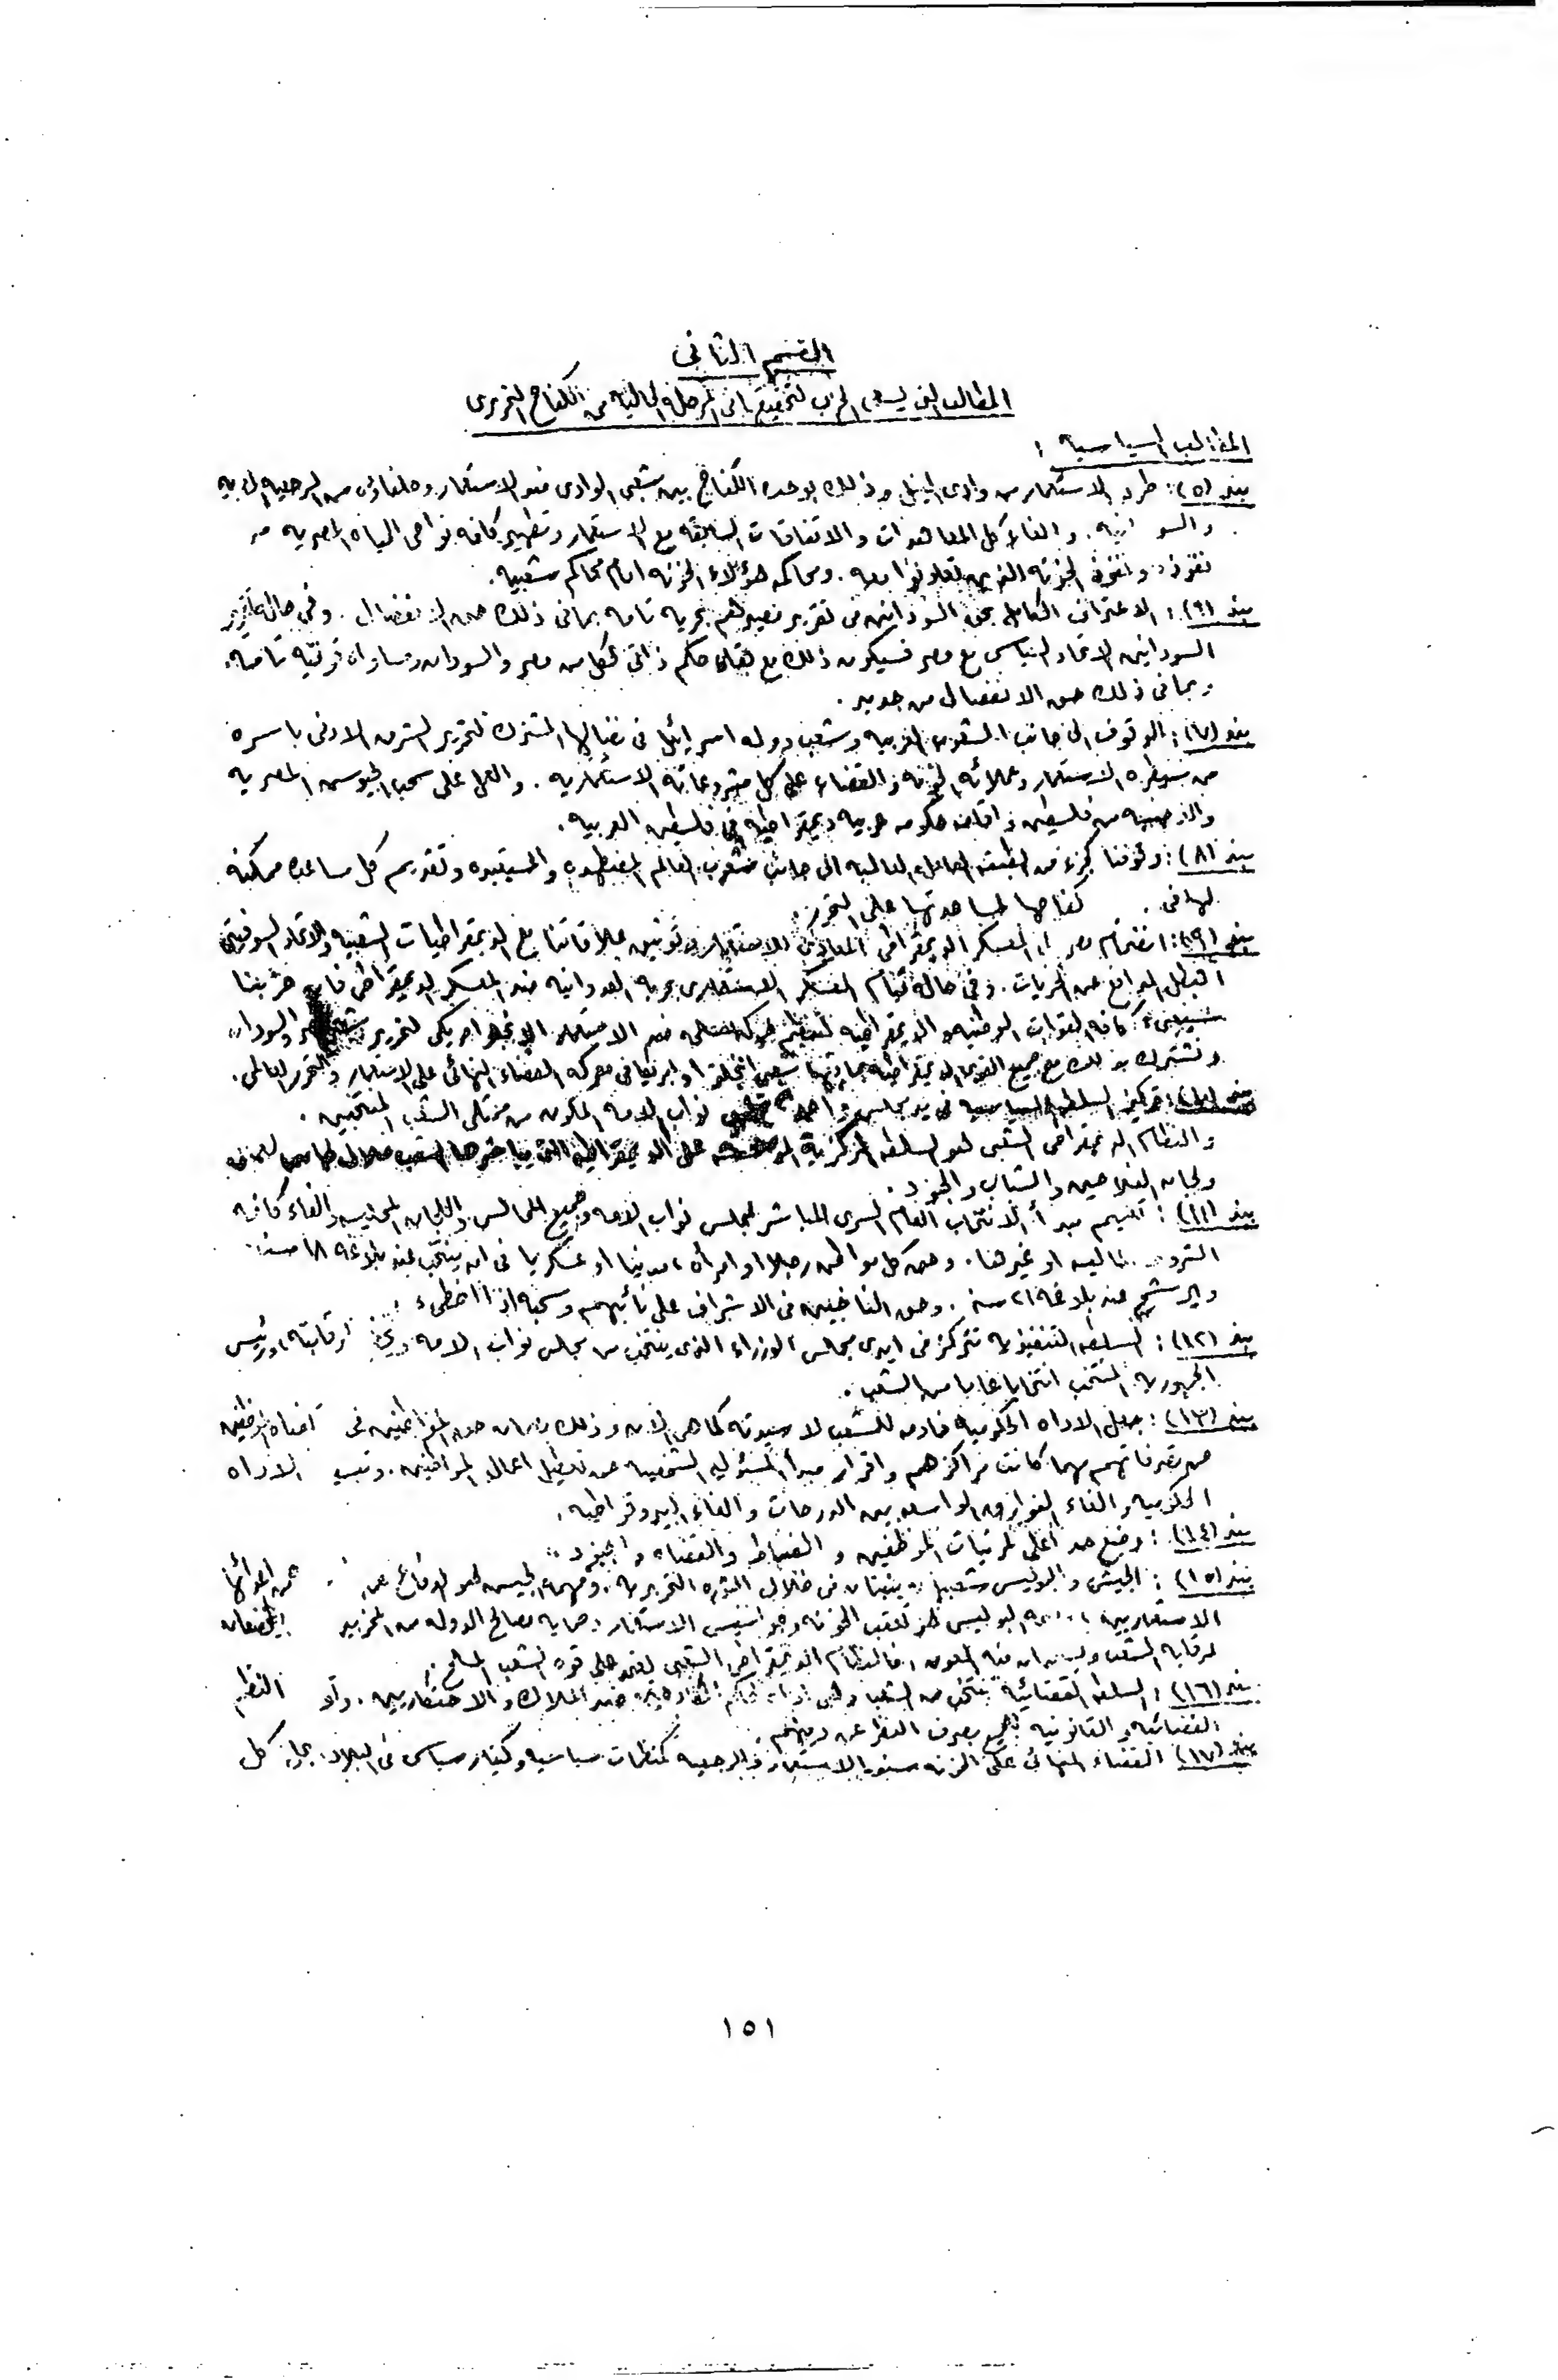 القسم الثانى
المطالب التى يسعى الحزب لتحقيقها فى المرحلة الحالية من الكفاح التحررى
المطالب السياسية :
بند (٥): طرد الاستعمار من وادى النيل وذلك بوحدة الكفاح بين شعبى الوادى ضد الاستعمار وحلفاؤه من الرجعيه
والسو انيه . والغاء كل المعاهدات والاتفاقات السابقه مع الاستعمار وتطهير كافه نواحى الحياه المصريه من
نفوذه ونفوذ الخونه الذين يتعاونوا معه . ومحاكمه هؤلاء الخونه امام محاكم شعبيه .
بند (٦) : الاعتراف الكامل بحق السودانيين فى تقرير مصيرهم بحريه تامه بما فى ذلك حق الانفصال . وفى حاله تقرير
السودانيين الاتحاد السياسى مع مصر فسيكون ذلك مع بقاء حكم ذاتى لكل من مصر والسودان ومساواه قوميه تامه
وبما فى ذلك حق الانفصال من جديد .
بند (٧) : الوقوف الى جانب الشعوب العربيه وشعب دوله اسرائيل فى نضالها المشترك لتحرير الشرق الادنى باسره
من سيطره الاستعمار وعملائه الخونه والقضاء على كل مشروعاته الاستعماريه . والعمل على سحب الجيوش المصريه
والاردنيه من فلسطين واقامه حكومه عربيه ديمقراطيه فى فلسطين العربيه .
بند (٨) : وقوفنا كجزء من الطبقه العامله العالميه الى جانب شعوب العالم المضطهده والمستعبده وتقديم كل مساعده ممكنه
لها فى كفاحها لمساعدتها على التحرر .
بند (٩) : انضمام مصر الى المعسكر الديمقراطى المعادى للاستعمار وتوثيق علاقاتنا مع الديمقراطيات الشعبيه والاتحاد السوفيتى
البطل المدافع عن الحريات . وفى حاله قيام المعسكر الاستعمارى بحربه العدوانيه ضد المعسكر الديمقراطى فان حزبنا
سيعبىء كافه القوات الوطنيه والديمقراطيه لتنظيم حركه ضد الاستعمار الانجلو امريكى لتحرير والسودان
ونشترك بذلك مع جميع القوى الديمقراطيه بما فيها شعبى انجلترا وامريكا فى معركه القضاء النهائى على الاستعمار والتحرر العالمى .
بند (١٠) : تركيز السلطه السياسيه فى يد مجلس واحد نواب الامه المكون من ممثلى الشعب المنتخبين .
والنظام الديمقراطى الشعبى هو السلطه المركزيه على الديمقراطيه التى يباشرها الشعب خلال
ولجان الفلاحين والشباب والجنود .
بند (١١) : تعميم مبدأ الانتخاب العام السرى المباشر لمجلس نواب الامه وجميع المجالس واللجان المحليه والغاء كافه
الشرو ماليه او غيرها . وحق كل مواطن رجلا او امرأه ، مدنيا او عسكريا فى ان ينتخب عند بلوغه ١٨ سنه
ويرشح عند بلوغه ٢١ سنه . وحق الناخبين فى الاشراف على نائبهم وسحبه اذا اخطىء .
بند (١٢) : السلطه التنفيذيه تتركز فى ايدى مجلس الوزراء الذى ينتخب من مجلس نواب الامه رقابته ، ورئيس
الجمهوريه المنتخب انتخابا عاما من الشعب .
بند (١٣) : جعل الاداه الحكوميه خادمه للشعب لا سيدته كما هى الان وذلك بضمان حق المواطنين فى
تصرفاتهم مهما كانت مراكزهم واقرار مبدأ المسئوليه الشخصيه عن تعطيل اعمال المواطنين . الاداه
الحكوميه والغاء الفوارق الواسعه بين الدرجات والغاء البيروقراطيه .
بند (١٤) : وضع حد أعلى لمرتبات الموظفين و الضباط والقضاه
بند (١٥) : الجيش والبوليس شعبيا ينبتان من خلال الثوره التحرريه . ومهمه الجيش هو الدفاع
الاستعماريين البوليس هو تعقب الخونه وجواسيس الاستعمار وحمايه مصالح الدوله من التخريب
لرقابه الشعب . فالنظام الديمقراطى الشعبى يعتمد على قوه الشعب المسلح .
بند (١٦) : السلطه القضائيه تنتخب من الشعب ضد الملاك والاحتكاريين . النظم
القضائيه والقانونيه بصرف النظر عن دينهم .
بند (١٧) القضاء النهائى على الخونه الاستعمار والرجعيه كمنظمات سياسيه وكتيار سياسى فى البلاد كل
١٥١